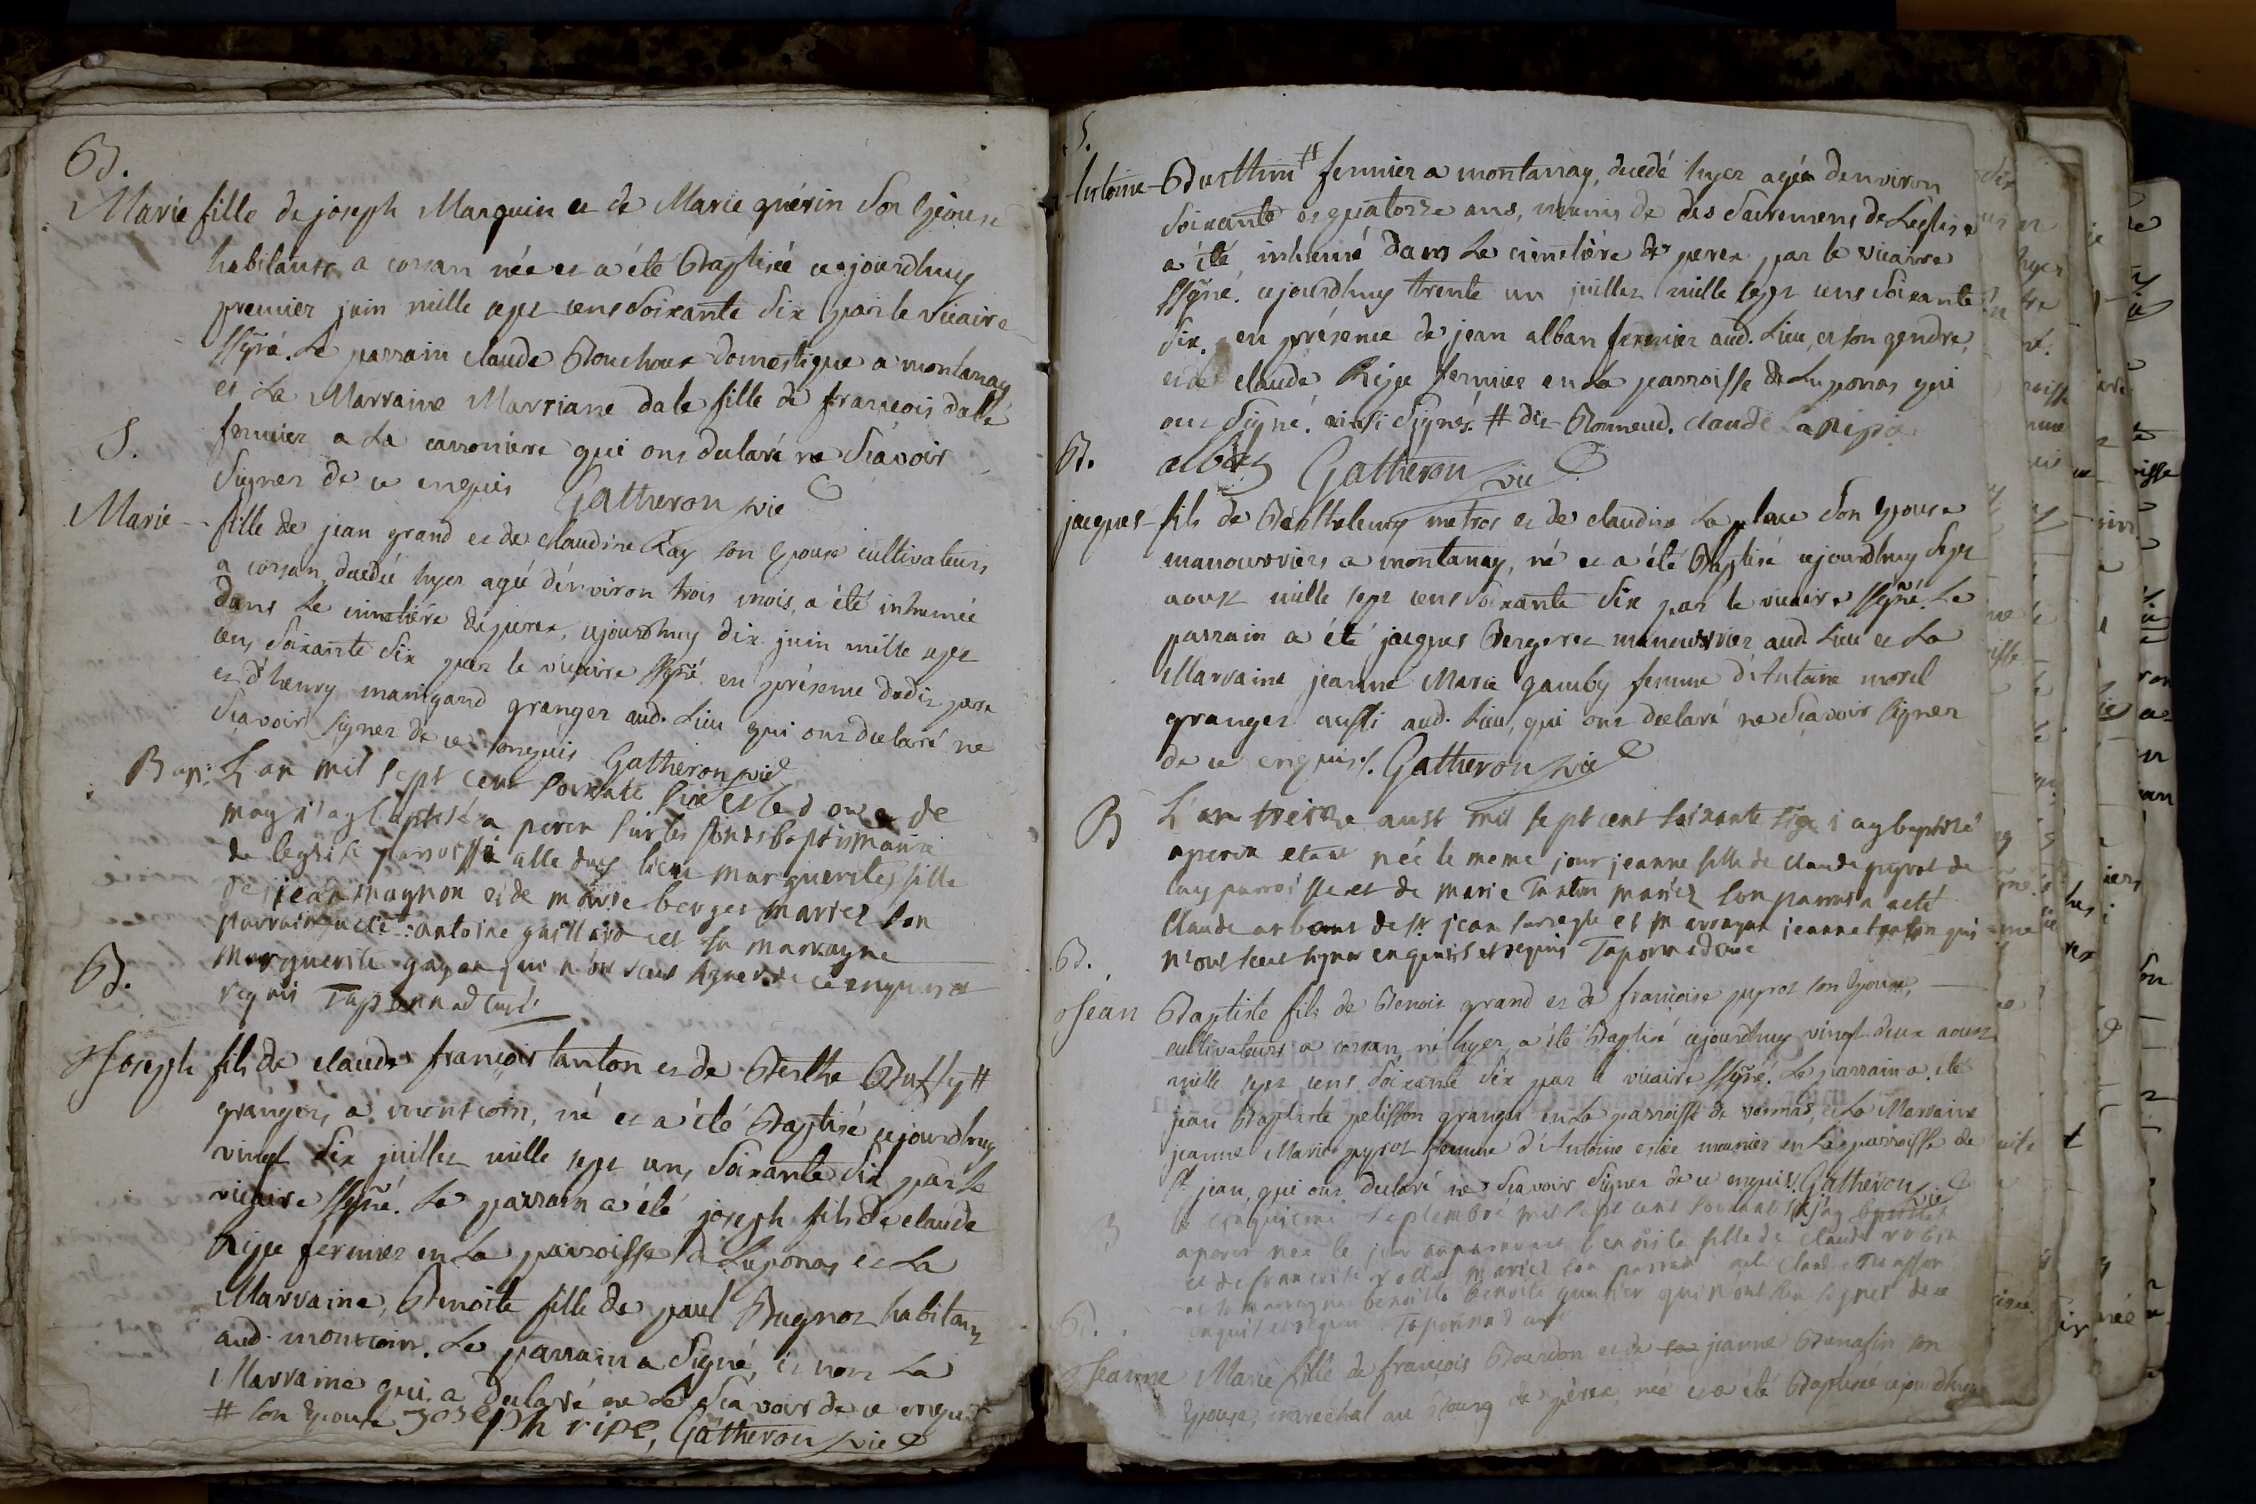 B.
Marie fille de joseph Marquin et de Marie guérin son Epouse
habitants a corsan née et a été Baptisée cejourdhuy
premier juin mille sept cens Soixante Six par le vicaire
ssigné. Le parrain claude Bouchoux domestique a montanay
et La Marraine Marriane dale fille de francois dalle
fermier a La carroniere qui ont declaré ne Scavoir
S.
Signer de ce enquis Gatheron vic
Marie - fille de jean grand et de claudine Ray son Epouse cultivateurs
a corsan, decedée hyer agée d'environ trois mois, a été inhumée
dans Le cimetière de perex, cejourdhuy dix juin mille sept
cens Soixante Six par le vicaire ssigné en présence dudit pere
et d'henry manigand granger aud. Lieu qui ont declaré ne
Scavoir signer de ce enquis Gatheron vic
Bap: L'an mil sept cent soixante six et le douze de
may j'ay baptisé a perex sur les fonts baptismaux
de leglise parroissialle dud. lieu marguerite fille
de jean magnon et de marie berger mariez son
parrain a eté antoine guillard et sa marrayne
marguerite gayan qui n'ont sceus signer de ce enquis et
requis Taponnad curé
B.
Joseph fils de claude françois tanton et de Berthe Buffy #
grangers a montcoin, né et a été Baptisé cejourdhuy
vingt Six juillet mille sept cens Soixante Six par le
vicaire ssigné. Le parrain a été joseph fils de claude
Rippe fermier en La parroisse de Luponas et La
Marraine, Benoite fille de paul Bugnot habitant
aud. montcoin. Le parrain a Signé, et non La
Marraine qui a declaré ne Le Scavoir de ce enquise
# son Epouse joseph ripe, Gatheron vic
S.
Antoine - Buathim # fermier a montanay, decedé hyer agé d'environ
Soixante et quatorze ans, munis de des Sacremens de Leglise
a été inhumé dans Le cimetière de perex par le vicaire
ssigné. cejourdhuy trente un juillet mille sept cens Soixante
Six. en présence de jean alban fermier aud. Lieu, et son gendre,
et de claude Rippe fermier en La parroisse de Luponas qui
ont Signé. ainsi Signés. # dit Bonneud. claude a ripe
B.
alban Gatheron vic
jacques - fils de Barthelemy metras et de claudine La place Son Epouse
manouvriers a montanay, né et a été Baptisé cejourdhuy Sept
aoust mille sept cens Soixante Six par le vicaire ssigné. Le
parrain a été jacques Bergeret manouvrier aud. Lieu et La
Marraine jeanne Marie gamby femme d'Antoine morel
granger aussi aud. Lieu, qui ont declaré ne Scavoir signer
de ce enquis. Gatheron vic
B L'an treize aust mil sept cent soixante six j ay baptisé
a perex etant née le meme jour jeanne fille de claude peyrot de
lay parroisse et de marie Tanton mariez son parrain a eté
Claude arbant de st jean sur et sa marrayne jeanne tanton qui
n'ont sceu signer enquis et requis Taponnad curé
B.
Jean Baptiste fils de Benoit grand et de françoise peyrot son Epouse,
cultivateurs a corsan, né hyer, a été Baptisé cejourdhuy vingt deux aoust
mille sept cens Soixante Six par le vicaire ssigné. Le parrain a été
jean Baptiste pelisson granger en La parroisse de vonnas, et La Marraine
jeanne Marie peyrot femme d'Antoine meunier en La parroisse de
st jean, qui ont declaré ne Scavoir Signer de ce enquis. Gatheron vic
B le cinquieme septembre mil sept cent soixante six j'ay baptisé
a perex née le jour benoite fille de claude robin
et de francoise mariez son parrain a eté Claude
et sa marrayne benoite qui n'ont sceu signer de ce
enquis et requis Taponnad curé
B.
Jeanne Marie fille de françois Bourdon et de jeanne son
Epouse, marechal au Bourg de pérex, née et a été Baptisée cejourdhuy